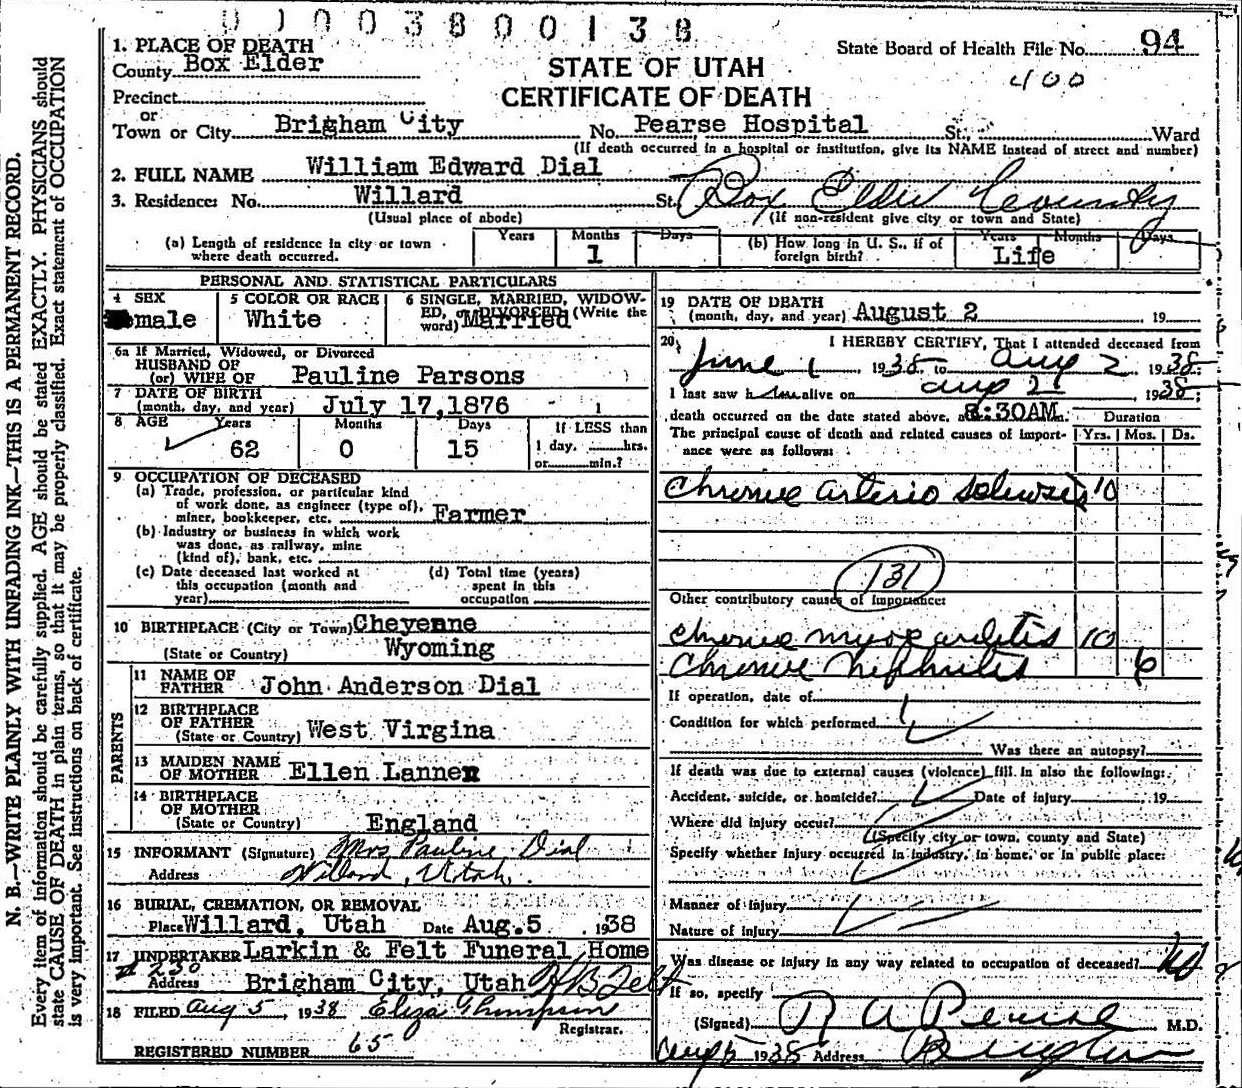 0 1 0 0 3 8 0 0 1 3 8
1. PLACE OF DEATH
County Box Elder
State Board of Health File No. 94
400
STATE OF UTAH
CERTIFICATE OF DEATH
Precinct
or
Town or City Brigham City No. Pearse Hospital St. Ward
(If death occurred in a hospital or institution, give its NAME instead of street and number)
2. FULL NAME William Edward Dial
3. Residence: No. Willard St. Box Elder County
(Usual place of abode) (If non-resident give city or town and State)
(a) Length of residence in city or town where death occurred. Years Months 1 Days
(b) How long in U. S., if of foreign birth? Years Months Days Life
PERSONAL AND STATISTICAL PARTICULARS
4 SEX male
5 COLOR OR RACE White
6 SINGLE, MARRIED, WIDOWED, or DIVORCED (Write the word) Married
6a If Married, Widowed, or Divorced
HUSBAND OF
(or) WIFE OF Pauline Parsons
7 DATE OF BIRTH
(month, day, and year) July 17, 1876
8 AGE Years 62 Months 0 Days 15 If LESS than 1 day, hrs. or min.?
9 OCCUPATION OF DECEASED
(a) Trade, profession, or particular kind
of work done, as engineer (type of),
miner, bookkeeper, etc. Farmer
(b) Industry or business in which work
was done, as railway, mine
(kind of), bank, etc.
(c) Date deceased last worked at
this occupation (month and
year)
(d) Total time (years)
spent in this
occupation
10 BIRTHPLACE (City or Town) Cheyenne
(State or Country) Wyoming
PARENTS
11 NAME OF
FATHER John Anderson Dial
12 BIRTHPLACE
OF FATHER
(State or Country) West Virgina
13 MAIDEN NAME
OF MOTHER Ellen Lannen
14 BIRTHPLACE
OF MOTHER
(State or Country) England
15 INFORMANT (Signature) Mrs Pauline Dial
Address Willard, Utah.
16 BURIAL, CREMATION, OR REMOVAL
Place Willard, Utah Date Aug. 5 1938
17 UNDERTAKER Larkin & Felt Funeral Home
# 230
Address Brigham City, Utah H B Felt
18 FILED Aug 5, 1938 Eliza Thompson
Registrar.
REGISTERED NUMBER 65
19 DATE OF DEATH
(month, day, and year) August 2 19
20 I HEREBY CERTIFY, That I attended deceased from
June 1, 1938 to Aug 2, 1938;
I last saw him alive on Aug 2, 1938;
death occurred on the date stated above, at 8:30AM.
Duration
The principal cause of death and related causes of importance were as follows: Yrs. Mos. Ds.
Chronic arterio sclerosis 10
131
Other contributory causes of importance:
Chronic myocarditis 10
Chronic nephritis 6
If operation, date of
Condition for which performed
Was there an autopsy?
If death was due to external causes (violence) fill in also the following:
Accident, suicide, or homicide? Date of injury 19
Where did injury occur?
(Specify city or town, county and State)
Specify whether injury occurred in industry, in home, or in public place:
Manner of injury
Nature of injury
Was disease or injury in any way related to occupation of deceased? No
If so, specify
(Signed) R A Pearse M.D.
Aug 5 1938 Address Brigham
N. B.—WRITE PLAINLY WITH UNFADING INK—THIS IS A PERMANENT RECORD.
Every item of information should be carefully supplied. AGE should be stated EXACTLY. PHYSICIANS should
state CAUSE OF DEATH in plain terms, so that it may be properly classified. Exact statement of OCCUPATION
is very important. See instructions on back of certificate.